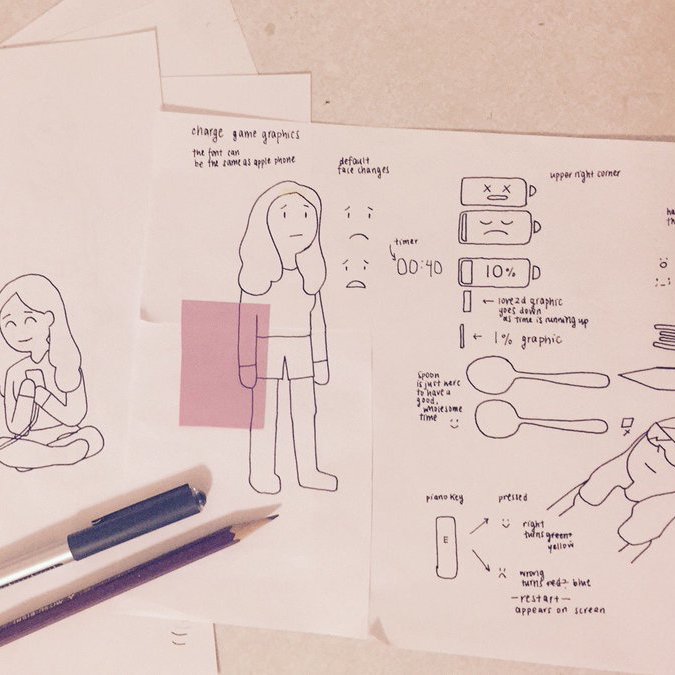 charge game graphics
the font can
be the same as apple phone
default
face changes
timer
00:40
upper right corner
10%
love2d graphic
goes down
as time is running up
1% graphic
spoon
is just here
to have a
good,
wholesome
time
piano key
E
pressed
right
turns green+
yellow
wrong
turns red+ blue
—restart—
appears on screen